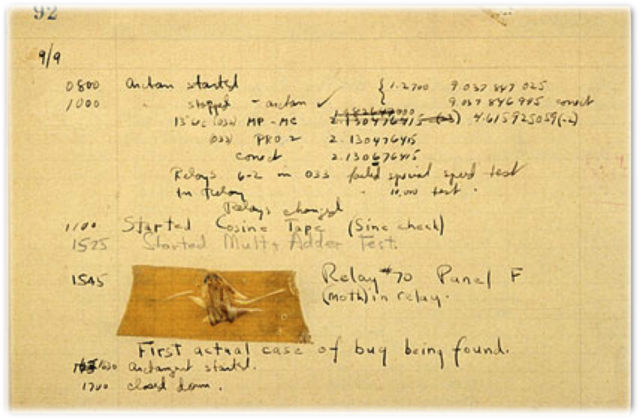 92
9/9
0800 Antan started { 1.2700 9.037 847 025
1000 " stopped - antan ✓ 9.037 846 995 correct
13"uc (032) MP - MC 2.130476415 (-3) 4.615925059(-2)
(033) PRO 2 2.130476415
correct 2.130676415
Relays 6-2 in 033 failed special speed test
In Relay " 10,000 test .
Relays changed
1100 Started Cosine Tape (Sine check)
1525 Started Mult + Adder Test.
1545 Relay #70 Panel F
(moth) in relay.
First actual case of bug being found.
1630 antangent started.
1700 closed down .